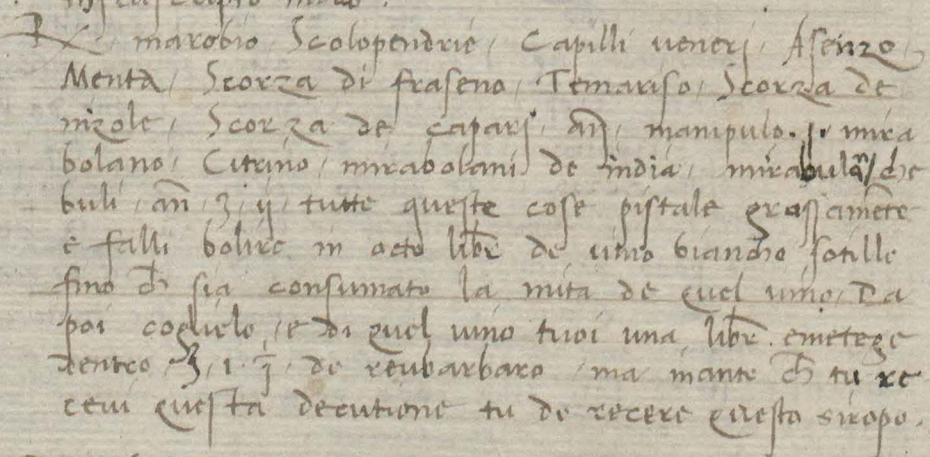 Rx marobio, Scolopendrie, Capilli ueneri, Asenzo,
Menta, Scorza di fraseno, Temariso, Scorza de
nizole, Scorza de capari, añ, manipulo. j. mira
bolano, Citrino, mirabolani de india, mirabulañ/ che
buli, añ ʒ ij tutte queste cose pistale grassamẽte
e falli bolire in octo libr̃ de uino biancho sotille
fino ch̃ sia consumato la mita de quel uino, Da
poi coglielo, e di quel uino tuoi una libr̃. emetege
dentro ʒ. 1. de reubarbaro, ma mante ch̃ tu re
ceui questa decutione tu de recere questo siropo.